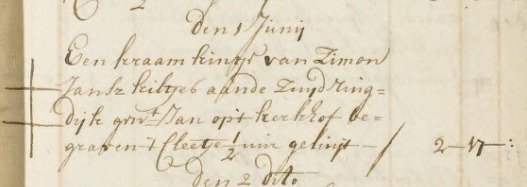 den 1 Junij
Een kraam kintje van Zimon
Jansz kiltjes aande Zuijdring=
dijk Jan op't kerkhof be=
graven 't Cleetje 1/2 uur geluijt — / 2-17-:
den 2 dito